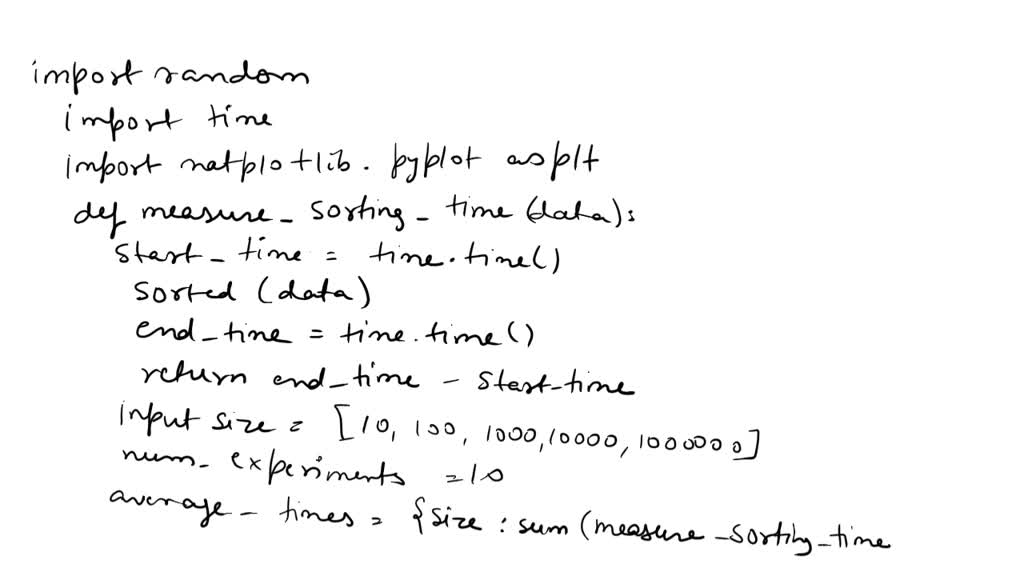 import random
import time
import matplotlib. pyplot as plt
def measure_ sorting_ time (data):
start_ time = time.time()
sorted (data)
end_time = time.time()
return end_time - start-time
input size = [10, 100, 1000,10000, 1000000]
num_ experiments =10
average_ times = {size : sum (measure_sorting_time